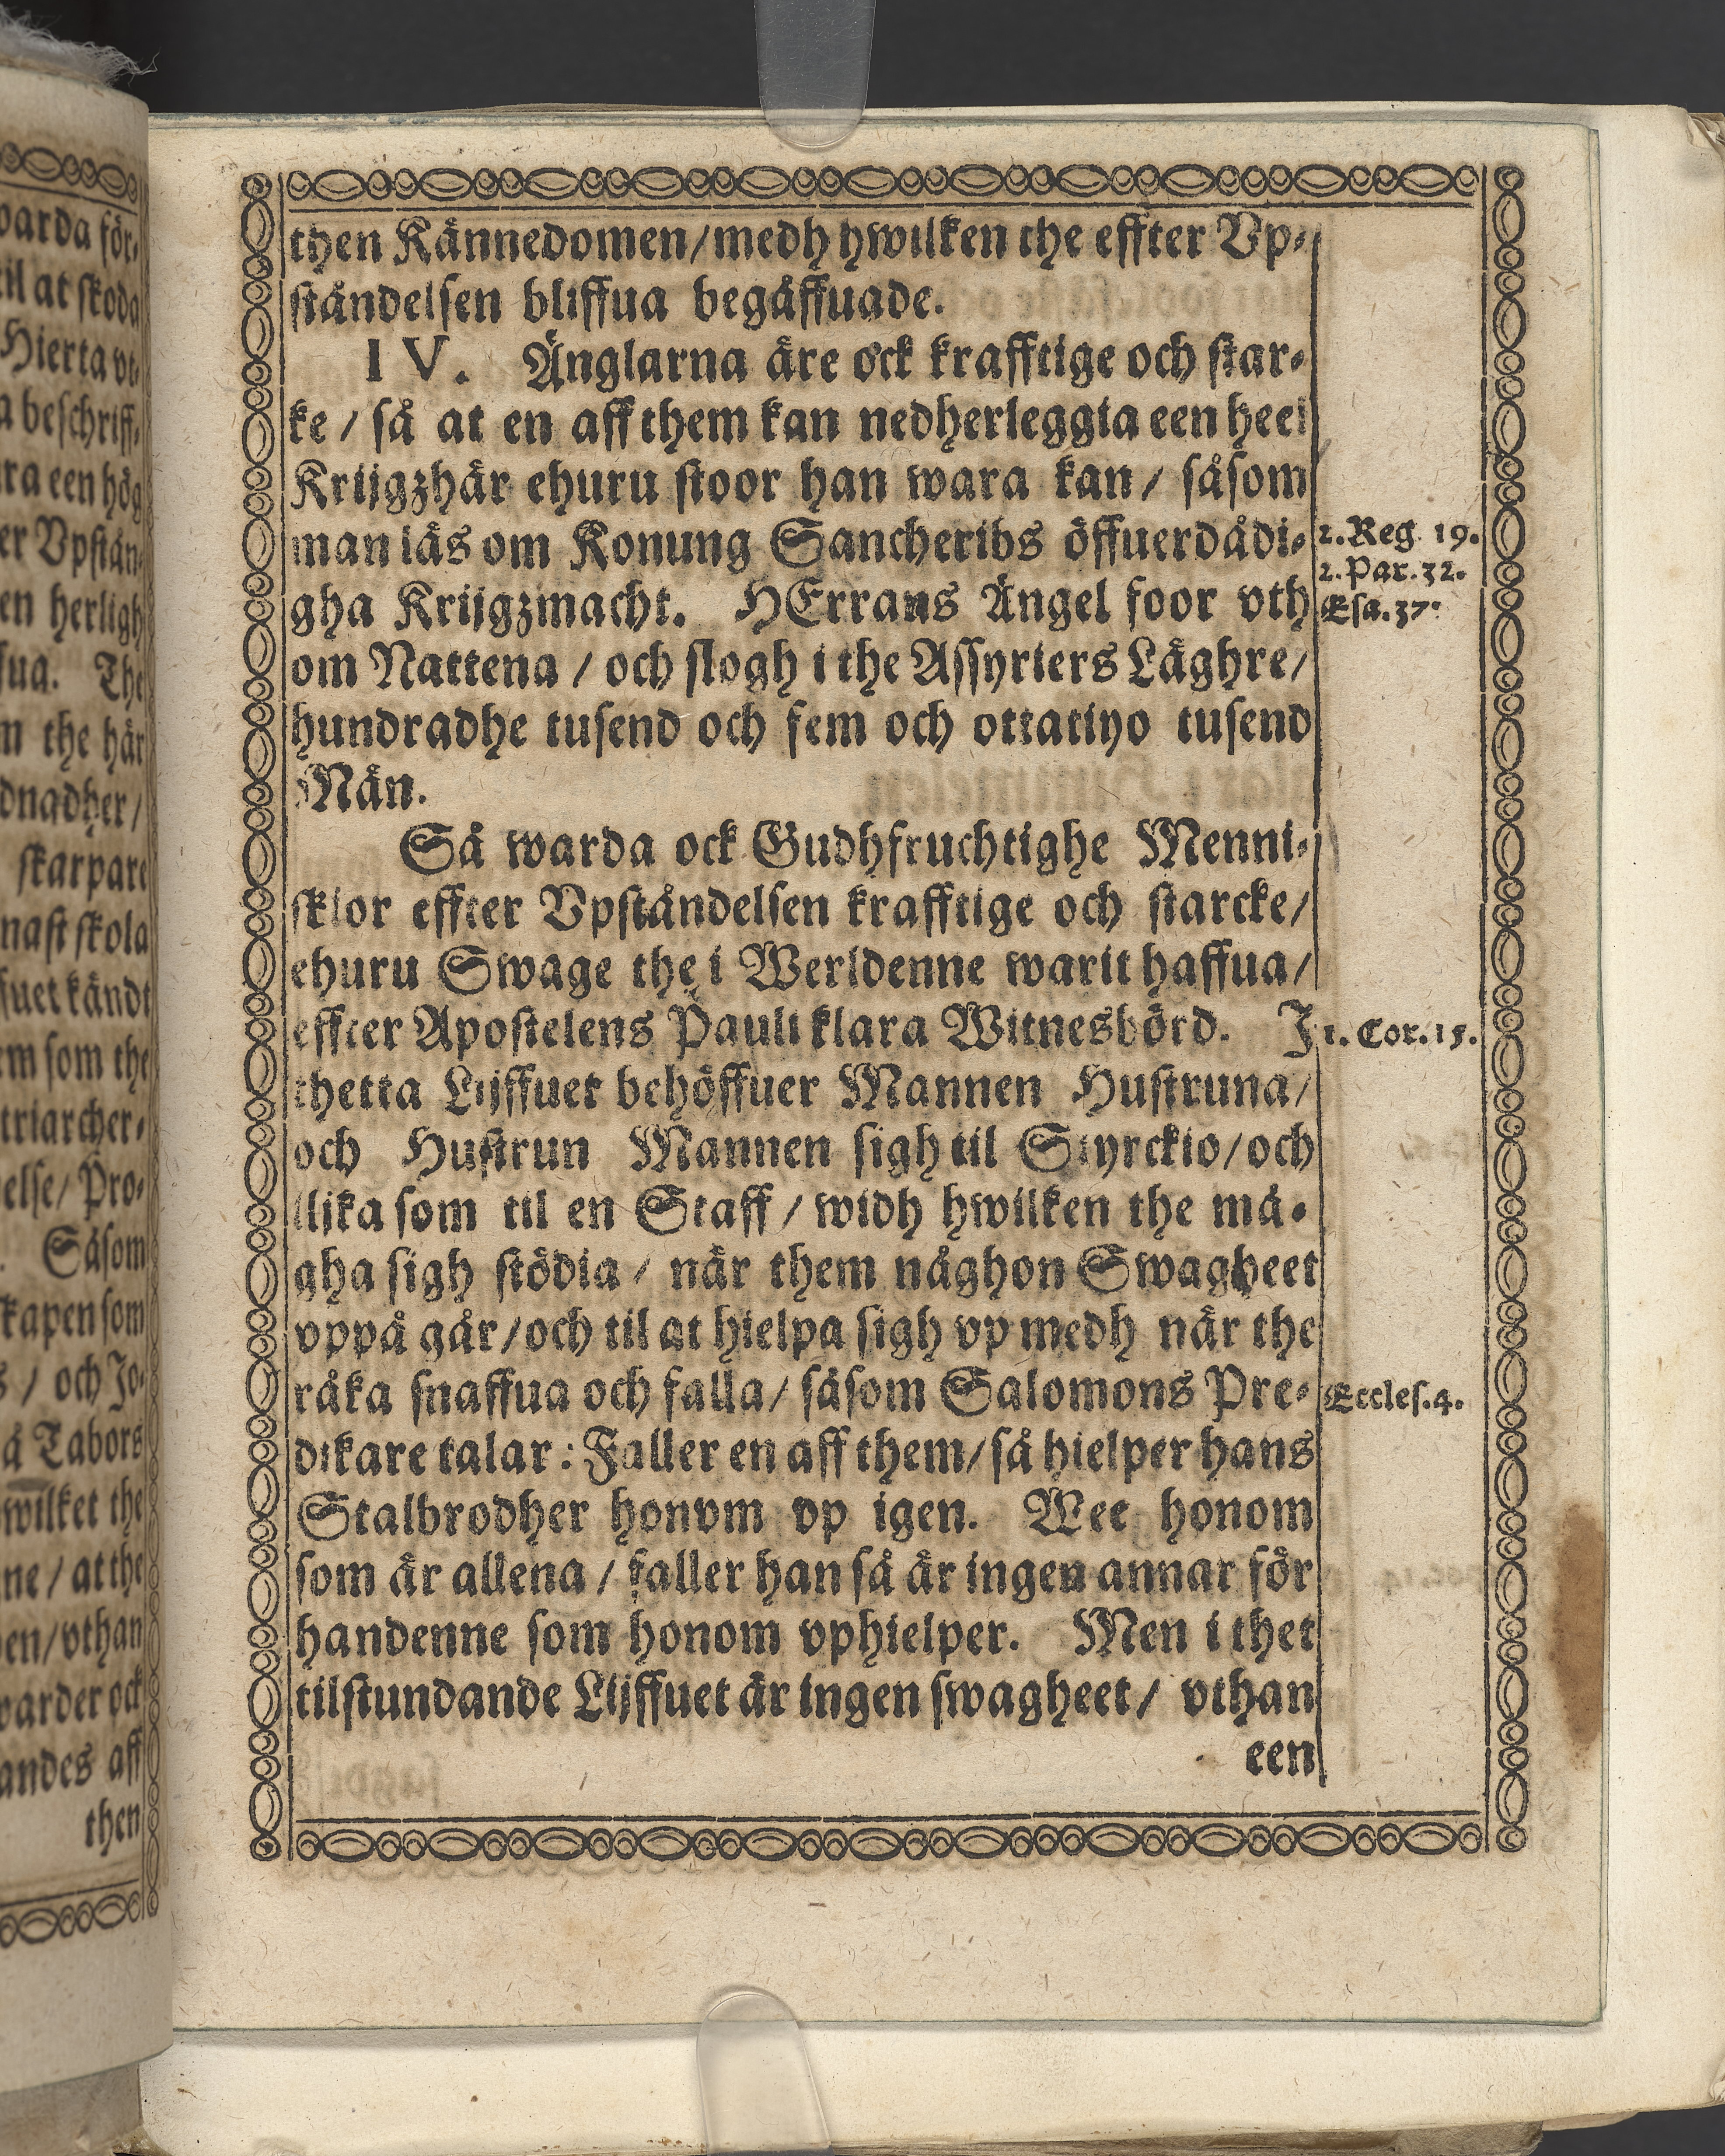 then Kännedomen/medh hwilken the effter Vp-
ståndelsen bliffua begåffuade.
IV. Änglarna äre ock krafftige och star-
ke / så at en aff them kan nedherleggia een heel
Krijgzhär ehuru stoor han wara kan / såsom
man läs om Konung Sancheribs öffuerdådi-
2. Reg. 19.
2. Par. 32.
gha Krijgzmacht. HErrans Ängel foor vth
Esa. 37.
om Nattena / och slogh i the Assyriers Läghre/
hundradhe tusend och fem och ottatiyo tusend
Män.
Så warda ock Gudhfruchtighe Menni-
skior effter Vpståndelsen krafftige och starcke/
ehuru Swage the i Werldenne warit haffua/
effter Apostelens Pauli klara Witnesbörd. J
1. Cor. 15.
thetta Lijffuet behöffuer Mannen Hustruna/
och Hustrun Mannen sigh til Styrckio/och
lijka som til en Staff / widh hwilken the må-
gha sigh stödia / när them någhon Swagheet
vppå går/och til at hielpa sigh vp medh när the
råka snaffua och falla/ såsom Salomons Pre-
Eccles. 4.
dikare talar: Faller en aff them/så hielper hans
Stalbrodher honvm vp igen. Wee honom
som är allena / faller han så är ingen annar för
handenne som honom vphielper. Men i thet
tilstundande Lijffuet är ingen swagheet/ vthan
een